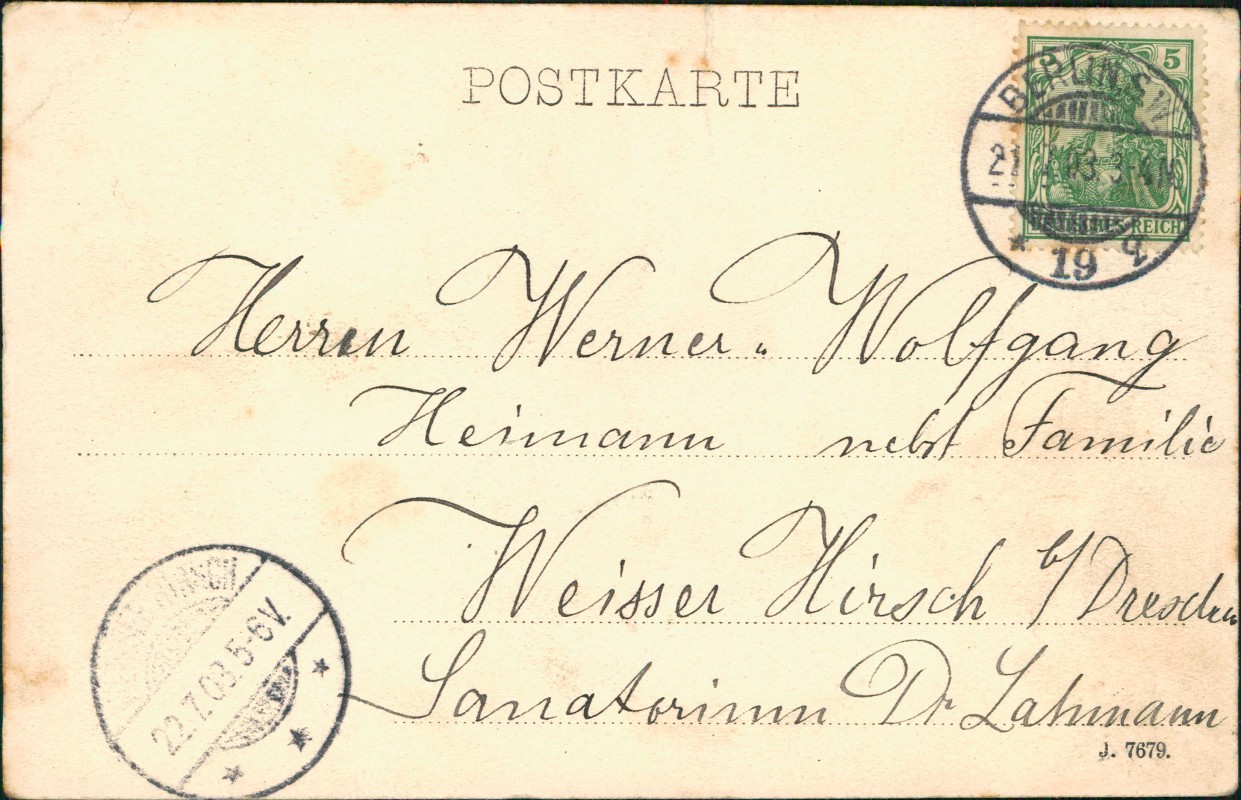 POSTKARTE
5 5
BERLIN S.W.
21.7.03.3-4N
DEUTSCHES REICH
* 19 q
Herren Werner u. Wolfgang
Heimann nebst Familie
Weisser Hirsch b/ Dresden
Sanatorium Dr Lahmann
HIRSCH
22.7.03.5-6V.
J. 7679.